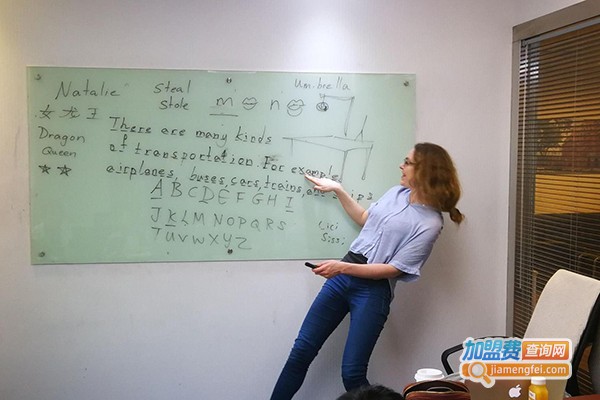 Natalie
女龙王
Dragon
Queen
Steal
Stole
m o n o
Umbrella
There are many kinds
of transportation. For example,
airplanes, buses, cars, trains, and ships
A B C D E F G H I
J K L M N O P Q R S
T U V W X Y Z
Cici
Sissi
加盟费查询网
jiamengfei.com